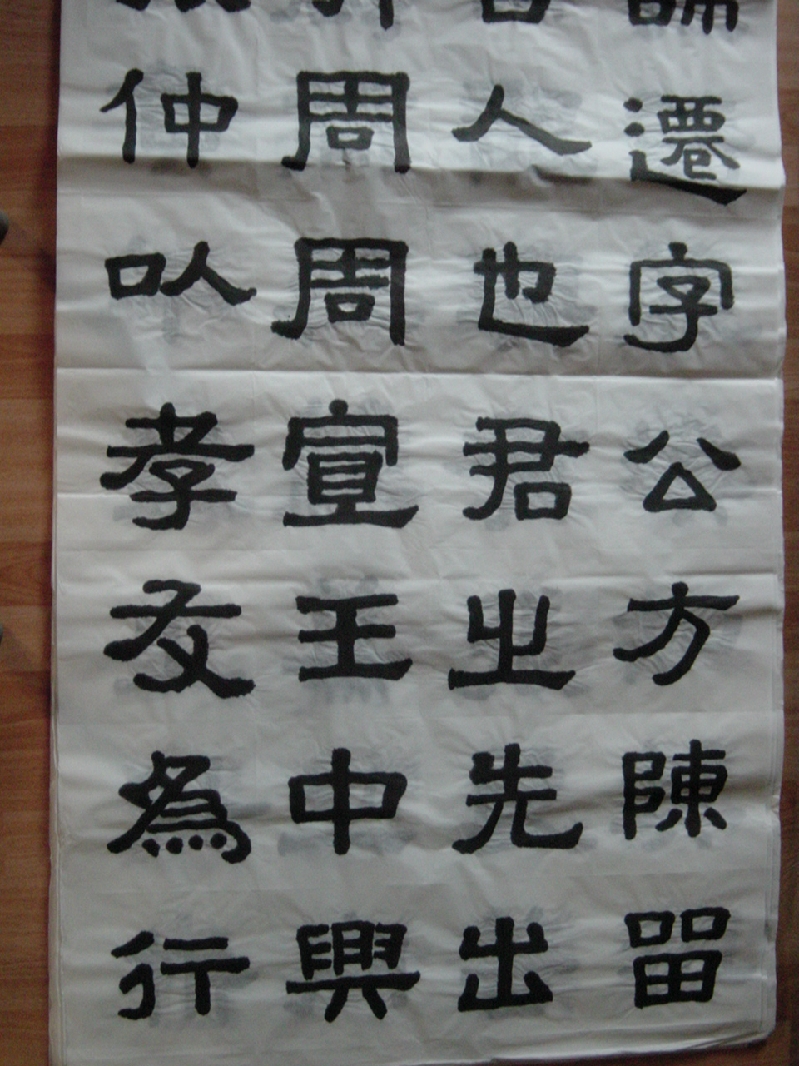 遷字公方陳留
人也君之先出
周周宣王中興
仲以孝友為行